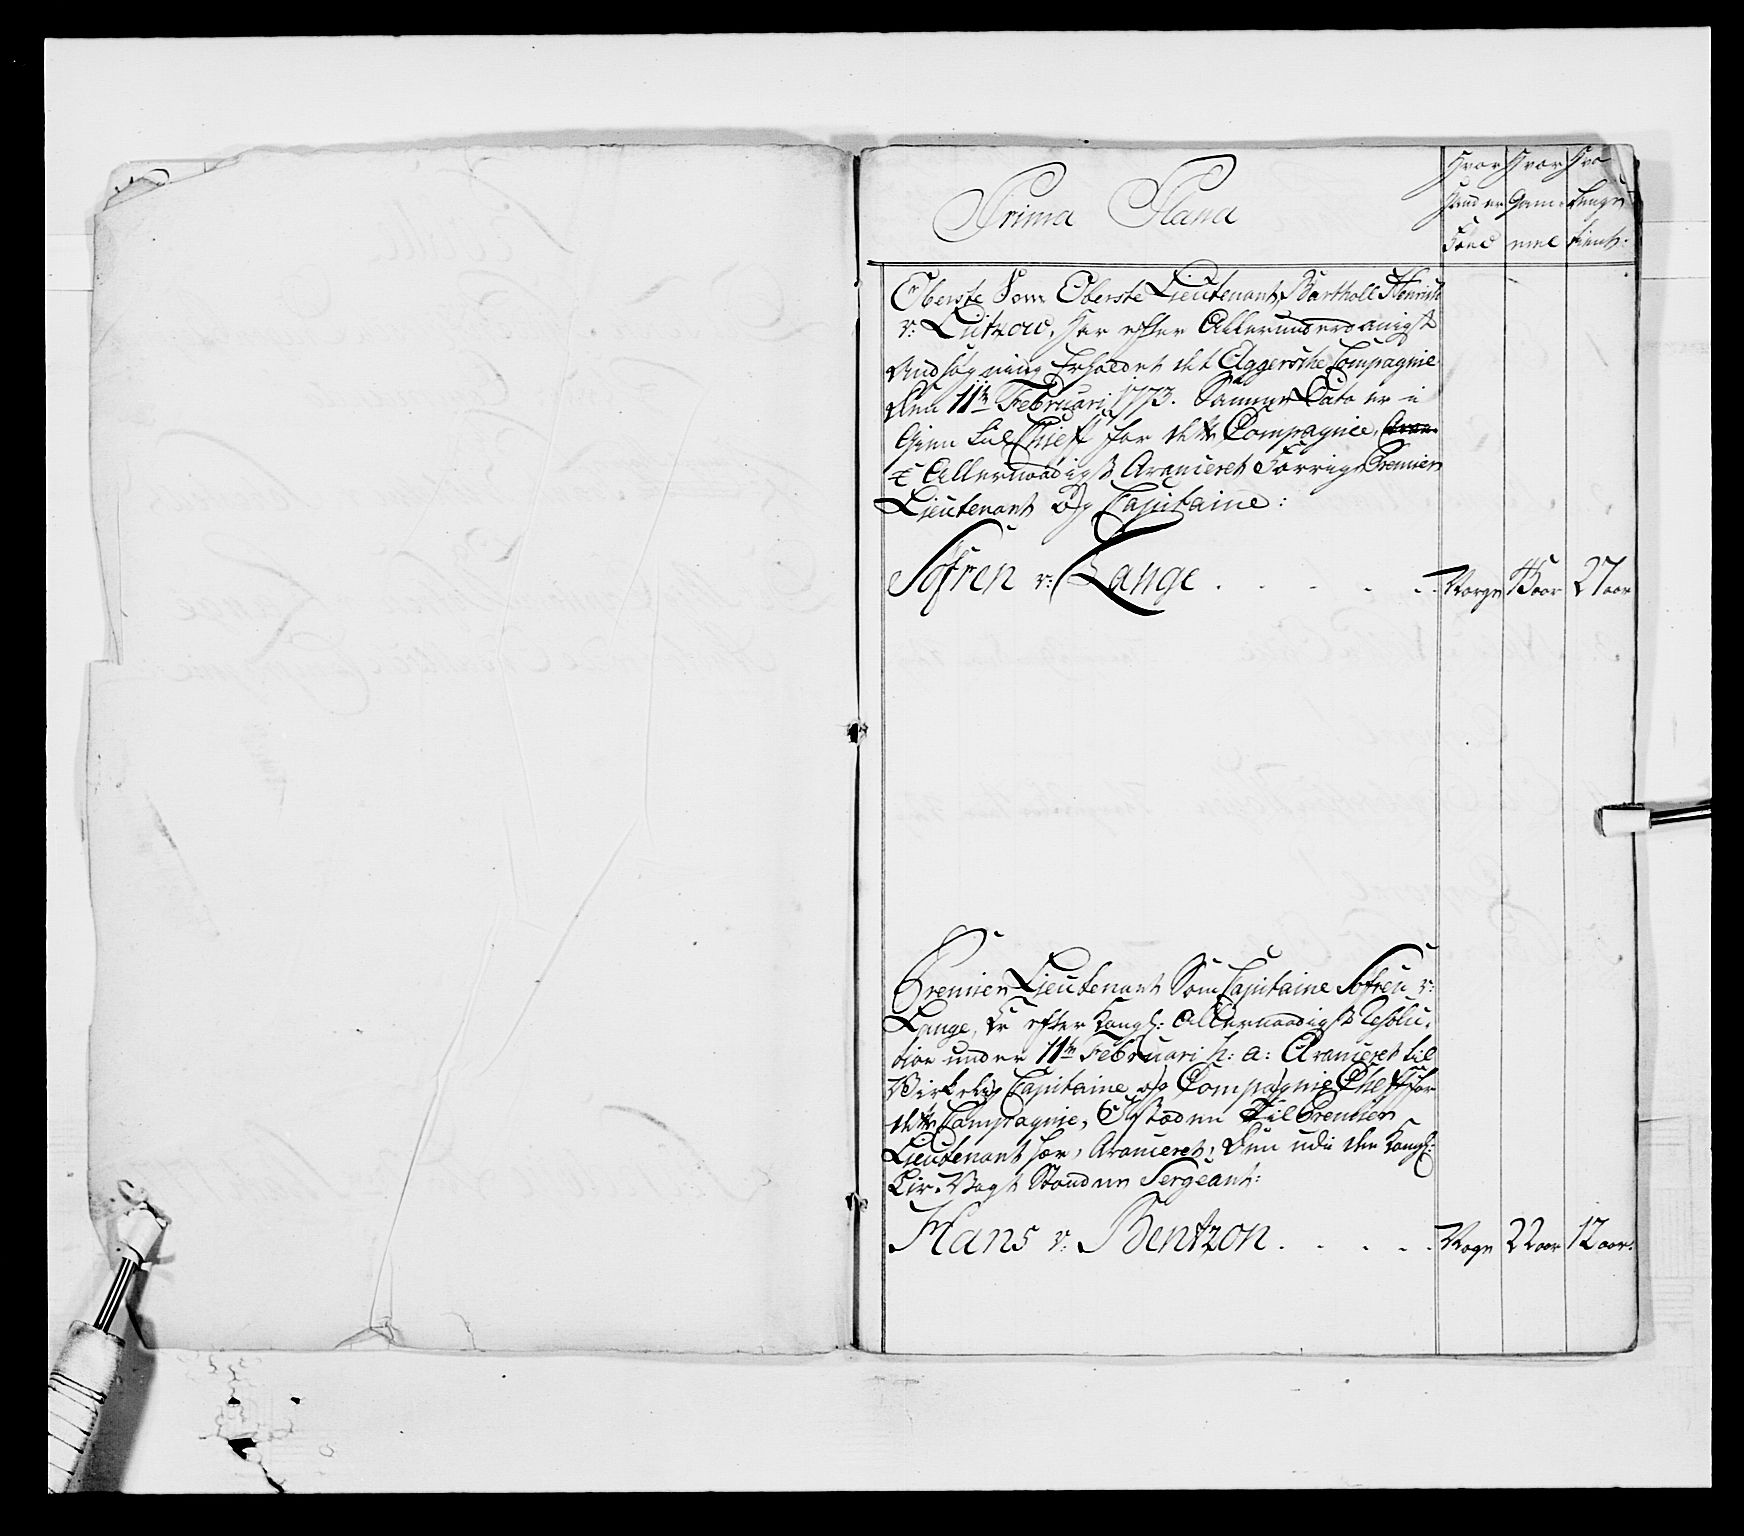 Prima Plana
Hvor Hvor Hvo
hand er Gam= Længe
Föed mel tient:
Oberste Som Oberste Lieutenant Bartholl Henrich
v: Lützow, har efter Allerunderdanigst
Ansøgning Erholdet det Aggersche Compagnie
den 11te Februari 1773. Samme Dato er i
Gien til Chieff for dette Compagnie,
Allernaadigst Avanceret Forrige Premier
Lieutenant og Capitaine:
Söfren v: Lange . . . . . Norge 45 aar 27 aar
Premier Lieutenant Som Capitaine Söfren v:
Lange, Er efter Kongl: Allernaadigst Resolu-
tion under 11te Februari h: a: Avanceret til
Virkelig Capitaine og Compagnie Cheff for
dette Compagnie, I steden Til Premier
Lieutenant her, Avanceret, den udi den Kongl:
Liv-Vagt Staaende Sergeant:
Hans v: Bentzon . . . . . Norge 22 aar 12 aar: